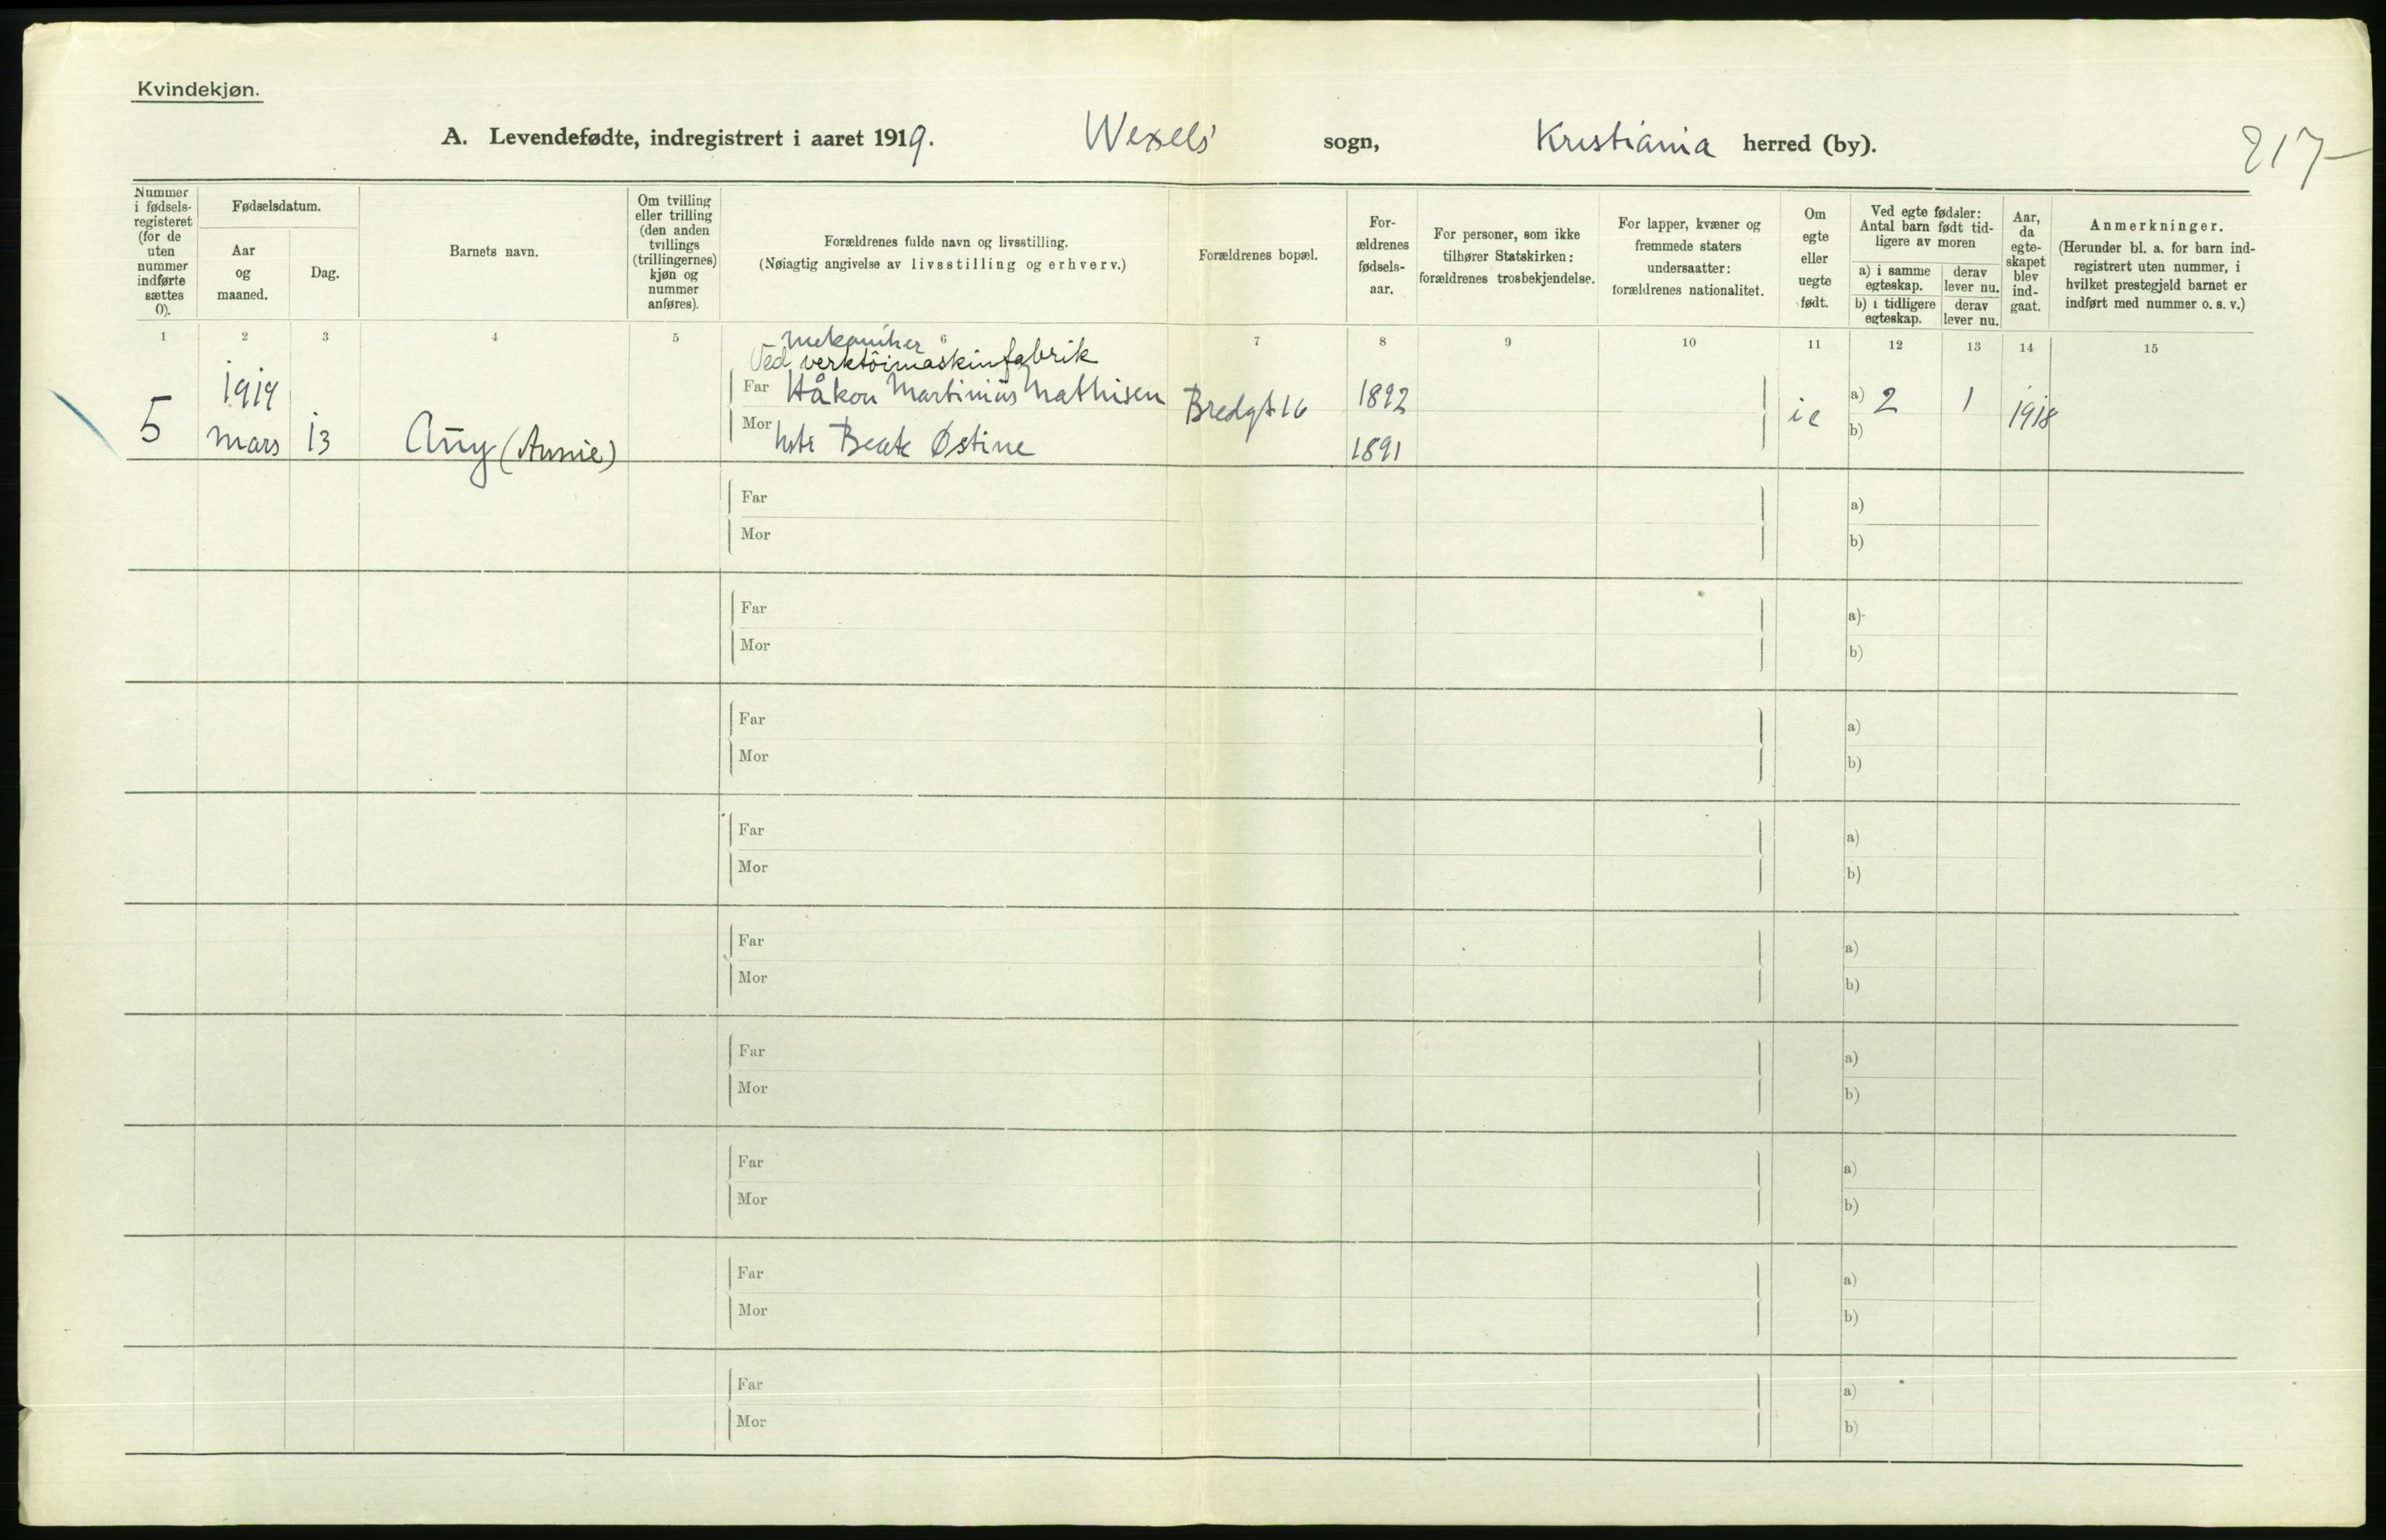 Kvindekjøn.
A. Levendefødte, indregistrert i aaret 1919. Wexels' sogn, Kristiania herred (by).
217
Nummer i fødselsregisteret (for de uten nummer indførte sættes 0).
Fødselsdatum.
Aar og maaned.
Dag.
Barnets navn.
Om tvilling eller trilling (den anden tvillings (trillingernes) kjøn og nummer anføres).
Forældrenes fulde navn og livsstilling.
(Nøiagtig angivelse av livsstilling og erhverv.)
Forældrenes bopæl.
For-ældrenes fødsels-aar.
For personer, som ikke tilhører Statskirken: forældrenes trosbekjendelse.
For lapper, kvæner og fremmede staters undersaatter: forældrenes nationalitet.
Om egte eller uegte født.
Ved egte fødsler: Antal barn født tid-ligere av moren
a) i samme egteskap.
derav lever nu.
b) i tidligere egteskap.
derav lever nu.
Aar, da egte-skapet blev ind-gaat.
Anmerkninger.
(Herunder bl. a. for barn ind-registrert uten nummer, i hvilket prestegjeld barnet er indført med nummer o. s. v.)
1 2 3 4 5 6 7 8 9 10 11 12 13 14 15
mekaniker
Ved verktöimaskinfabrik
5 1919 mars 13 Any (Annie)
Far Håkon Martinius Mathisen Bredgt 16 1892
Mor hstr Beate Østine 1891
a) 2 1 1918
b)
Far a)
Mor b)
Far a)
Mor b)
Far a)
Mor b)
Far a)
Mor b)
Far a)
Mor b)
Far a)
Mor b)
Far a)
Mor b)
Far a)
Mor b)
Far a)
Mor b)